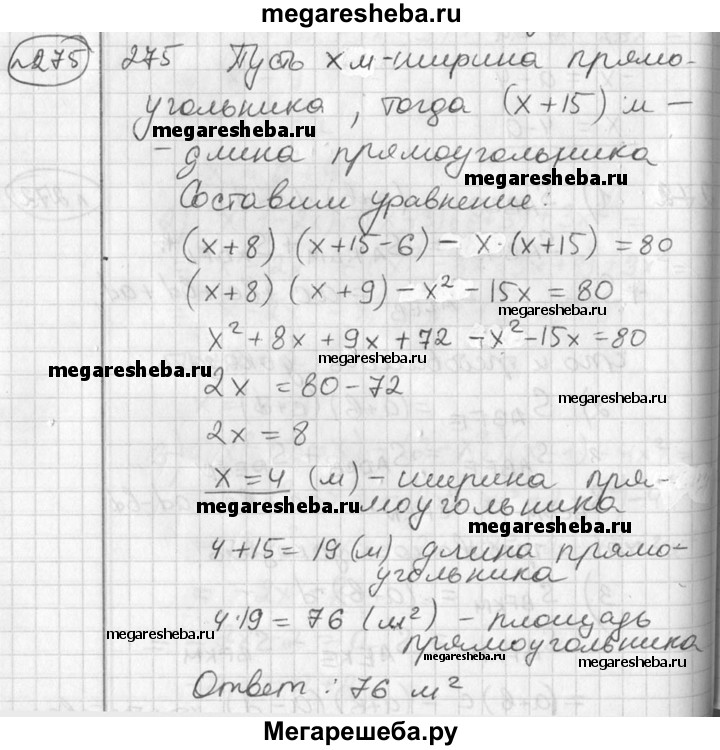 megaresheba.ru
№275 275 Пусть x м-ширина прямо-
угольника, тогда (x+15) м -
megaresheba.ru
- длина прямоугольника
megaresheba.ru
Составим уравнение:
(x+8) (x+15-6) - x·(x+15) = 80
(x+8) (x+9) - x² - 15x = 80
megaresheba.ru
x² + 8x + 9x + 72 - x² - 15x = 80
megaresheba.ru
megaresheba.ru
2x = 80 - 72
megaresheba.ru
2x = 8
x = 4 (м) - ширина пря-
моугольника
megaresheba.ru
megaresheba.ru
4+15 = 19 (м) длина прямо-
угольника
4·19 = 76 (м²) - площадь
megaresheba.ru
прямоугольника
megaresheba.ru
megaresheba.ru
Ответ: 76 м²
Мегарешеба.ру